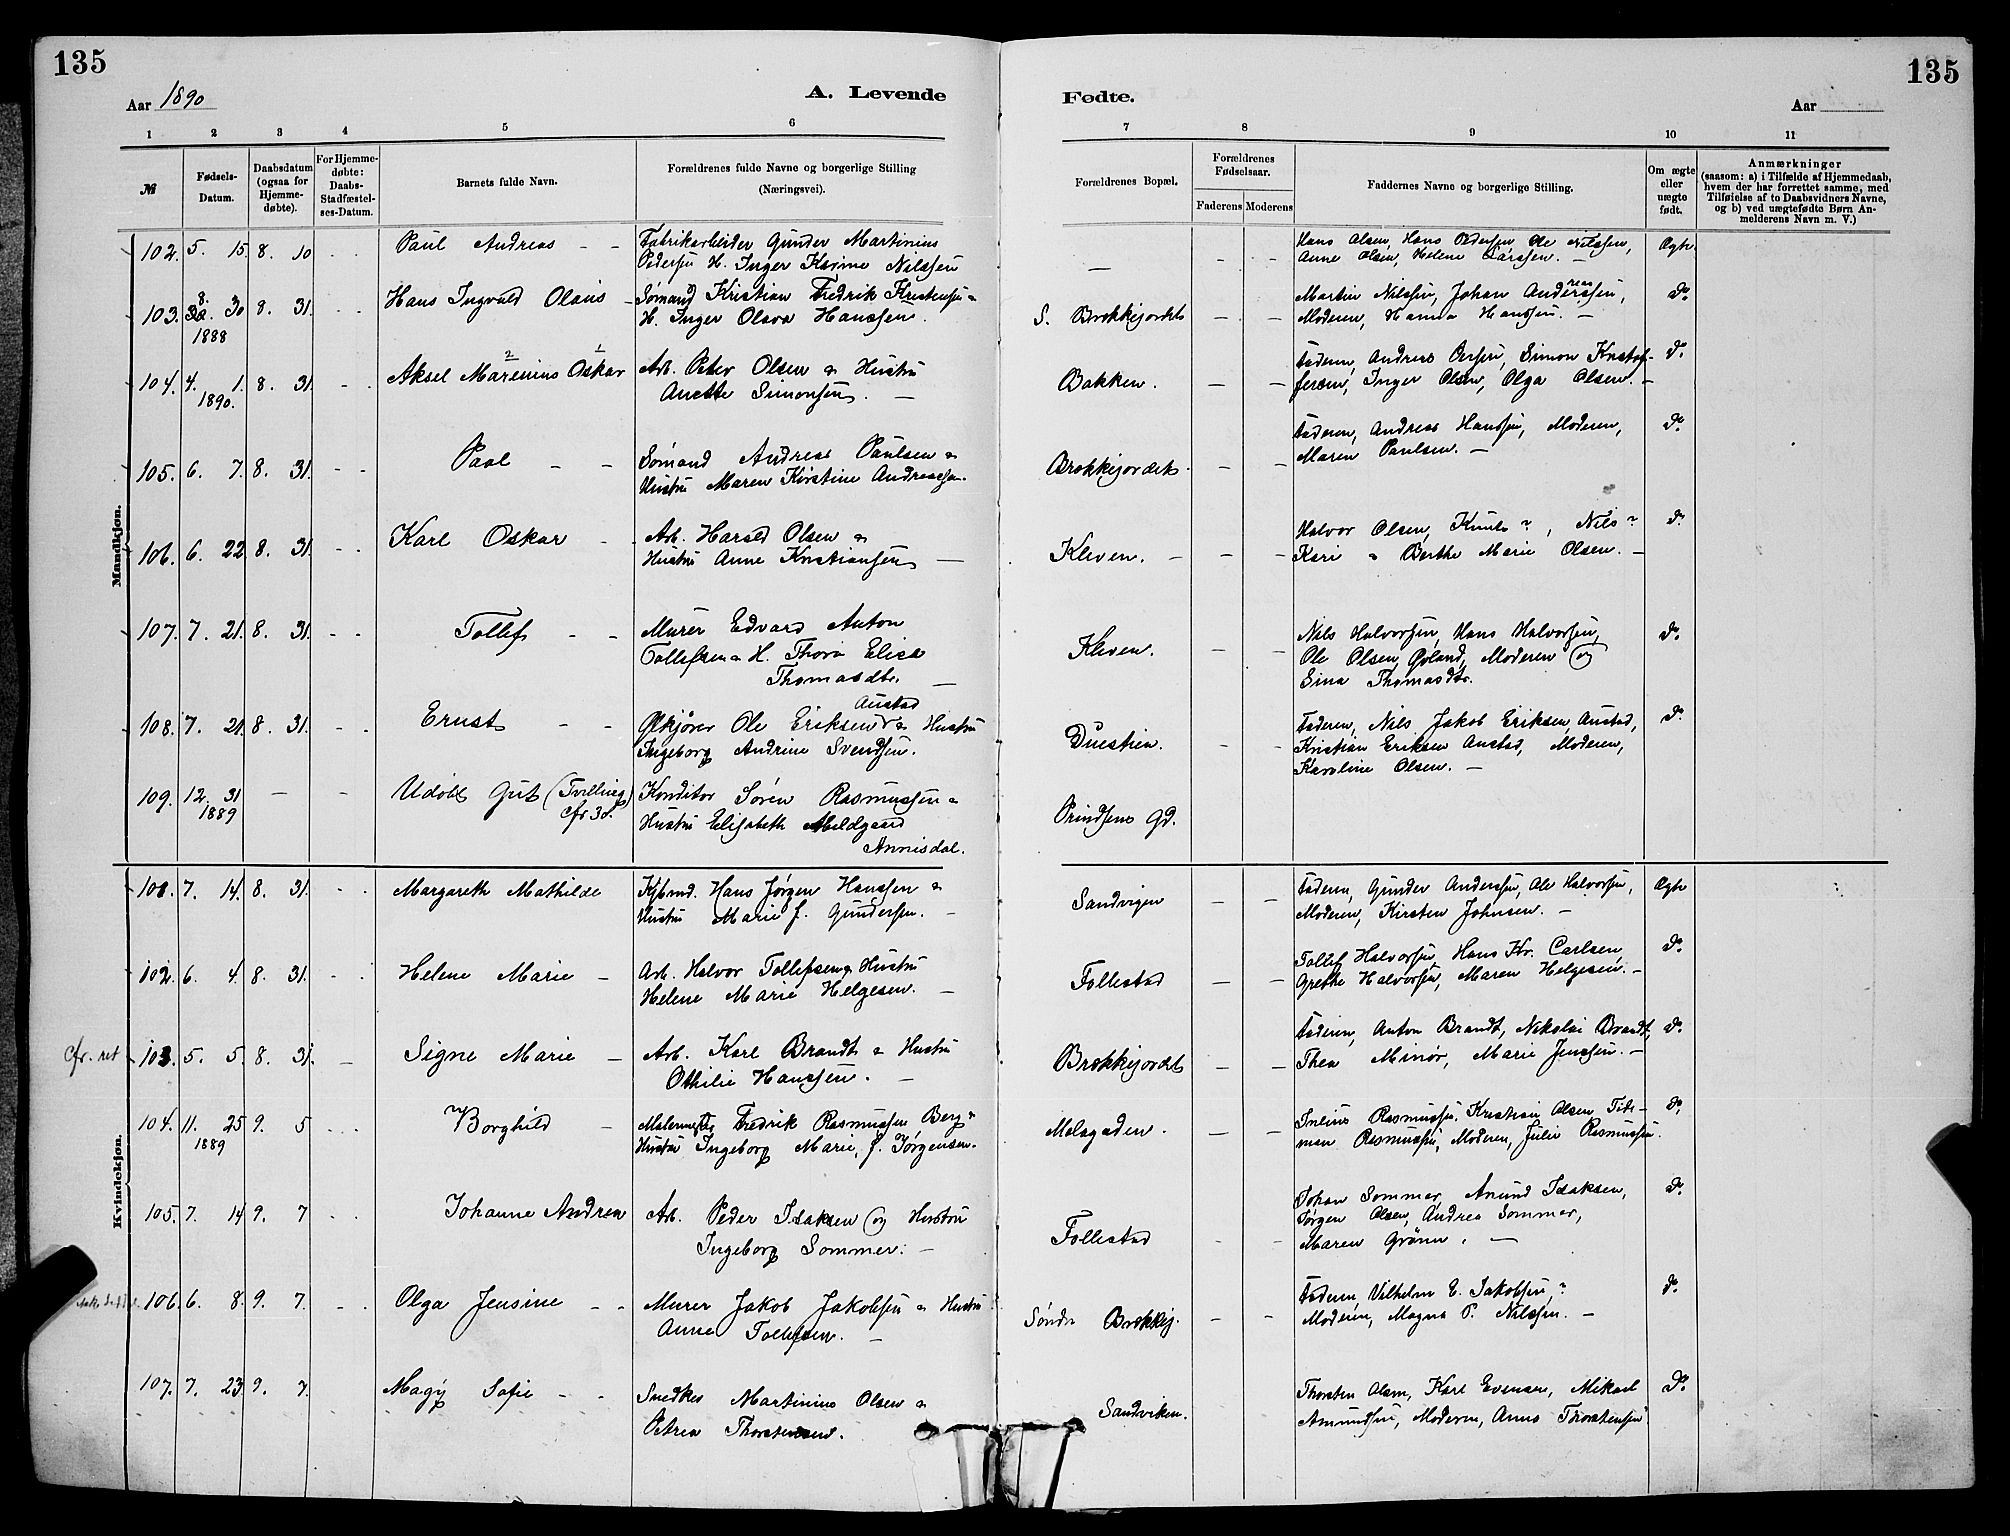 135
135
Aar 1890
A. Levende
Fødte.
Aar
1 2 3 4 5 6 7 8 9 10 11
№ Fødsels-Datum. Daabsdatum (ogsaa for Hjemme-døbte). For Hjemme-døbte: Daabs-Stadfæstel-ses-Datum. Barnets fulde Navn. Forældrenes fulde Navne og borgerlige Stilling (Næringsvei). Forældrenes Bopæl. Forældrenes Fødselsaar. Faderens Moderens Faddernes Navne og borgerlige Stilling. Om ægte eller uægte født. Anmærkninger
(saasom: a) i Tilfælde af Hjemmedaab,
hvem der har forrettet samme, med
Tilføielse af to Daabsvidners Navne,
og b) ved uægtefødte Børn An-
melderens Navn m. V.)
Mandkjøn.
102. 5. 15. 8. 10 Paul Andreas - - Fabrikarbeider Gunder Martinius — - - Hans Olsen, Hans Pedersen, Ole Nilssen, Ægte
Pedersen H. Inger Karine Nilssen Anne Olsen, Helene Larssen. —
103. 8. 30 8. 31. Hans Ingvald Olaus - Sømand Kristian Fredrik Kristensen & S. Brækkejordet - - Martin Nilssen, Johan Anderssen, do
1888 H. Inger Olava Hanssen. Moderen, Hanna Hanssen. —
104. 4. 1. 8. 31. Aksel Marenius Oskar Arb. Peter Olsen & Hustru Bakken. - - Faderen, Andreas Simon Kristof- do
1890. Anette Simonsen. — fersen, Inger Olsen, Olga Olsen. —
105. 6. 7. 8. 31. Paal - - Sømand Andreas Paulsen & Brækkejordet. - - Faderen, Andreas Hanssen, Moderen, do
Hustru Maren Kirstine Andreassen. Maren Paulsen. —
106. 6. 22 8. 31. Karl Oskar - - Arb. Harald Olsen & Kleven. - - - Halvor Olsen, Knut ?, Nils ? do
Hustru Anne Kristiansen — Kari & Berthe Marie Olsen. —
107. 7. 21. 8. 31. Tollef - - Murer Edvard Anton Kleven. - - Nils Halvorsen, Hans Halvorsen, do
Tollefsen & H. Thora Elise Ole Olsen Goland, Moderen og
Thomasdtr. — Sina Thomasdtr.
Austad
108. 7. 21. 8. 31. Ernst - - Ølkjører Ole Eriksen & Hustru Duestien. - - Faderen, Nils Jakob Eriksen Austad, do
Ingeborg Andrine Svendsen. Kristian Eriksen Austad, Moderen,
Karoline Olsen. —
109. 12. 31 — - Udøbt Gut (Tvilling Konditor Søren Rasmussen & Prindsens Gd.
1889 cfr 38. Hustru Elisabeth Meldgaard
Annisdal.
Kvindekjøn.
101. 7. 14. 8. 31. Margareth Mathilde Kjøbmd. Hans Jørgen Hanssen & Sandvigen - - Faderen, Gunder Anderssen, Ole Halvorsen, Ægte
Hustru Marie f. Gundersen. - Moderen, Kirsten Johnsen. —
102. 6. 4. 8. 31. Helene Marie - Arb. Halvor Tollefsen & Hustru Follestad - - Tollef Halvorsen, Hans Kr. Carlsen, do
Helene Marie Helgesen. - Grethe Halvorsen, Maren Helgesen. -
cfr. ret 103. 5. 5. 8. 31. Signe Marie - Arb. Karl Brandt & Hustru Brækkejordet - - Faderen, Anton Brandt, Nikolai Brandt, do
Othilie Hanssen. - Thea Minor, Marie Jenssen. —
104. 11. 25 9. 5 Borghild - Malermester Fredrik Rasmussen Berg & Malagaden. - - Julius Rasmussen, Kristian Olsen, do
1889 Hustru Ingeborg Marie, f. Jørgensen. man Rasmussen, Moderen, Julie Rasmussen.
105. 7. 14 9. 7 Johanne Andrea Arb. Peder Isaksen og Hustru Follestad - - Johan Sommer, Anund Isaksen, do
Ingeborg Sommer. — Jørgen Olsen, Andrea Sommer,
Maren Grønn. —
106. 6. 8. 9. 7. Olga Jensine - - Murer Jakob Jakobsen & Hustru Søndr Brækkej. - - Faderen Vilhelm E. Jakobsen, ? do
Anne Tollefsen. - Moderen, Magna P. Nilssen. -
107. 7. 23. 9. 7. Magy Sofie - - Snedker Martinius Olsen & Sandviken. Thorsten Olsen, Karl Evensen, Mikael do
Petrea Thorstensen. Amundsen, Moderen, Anne Thorstensen